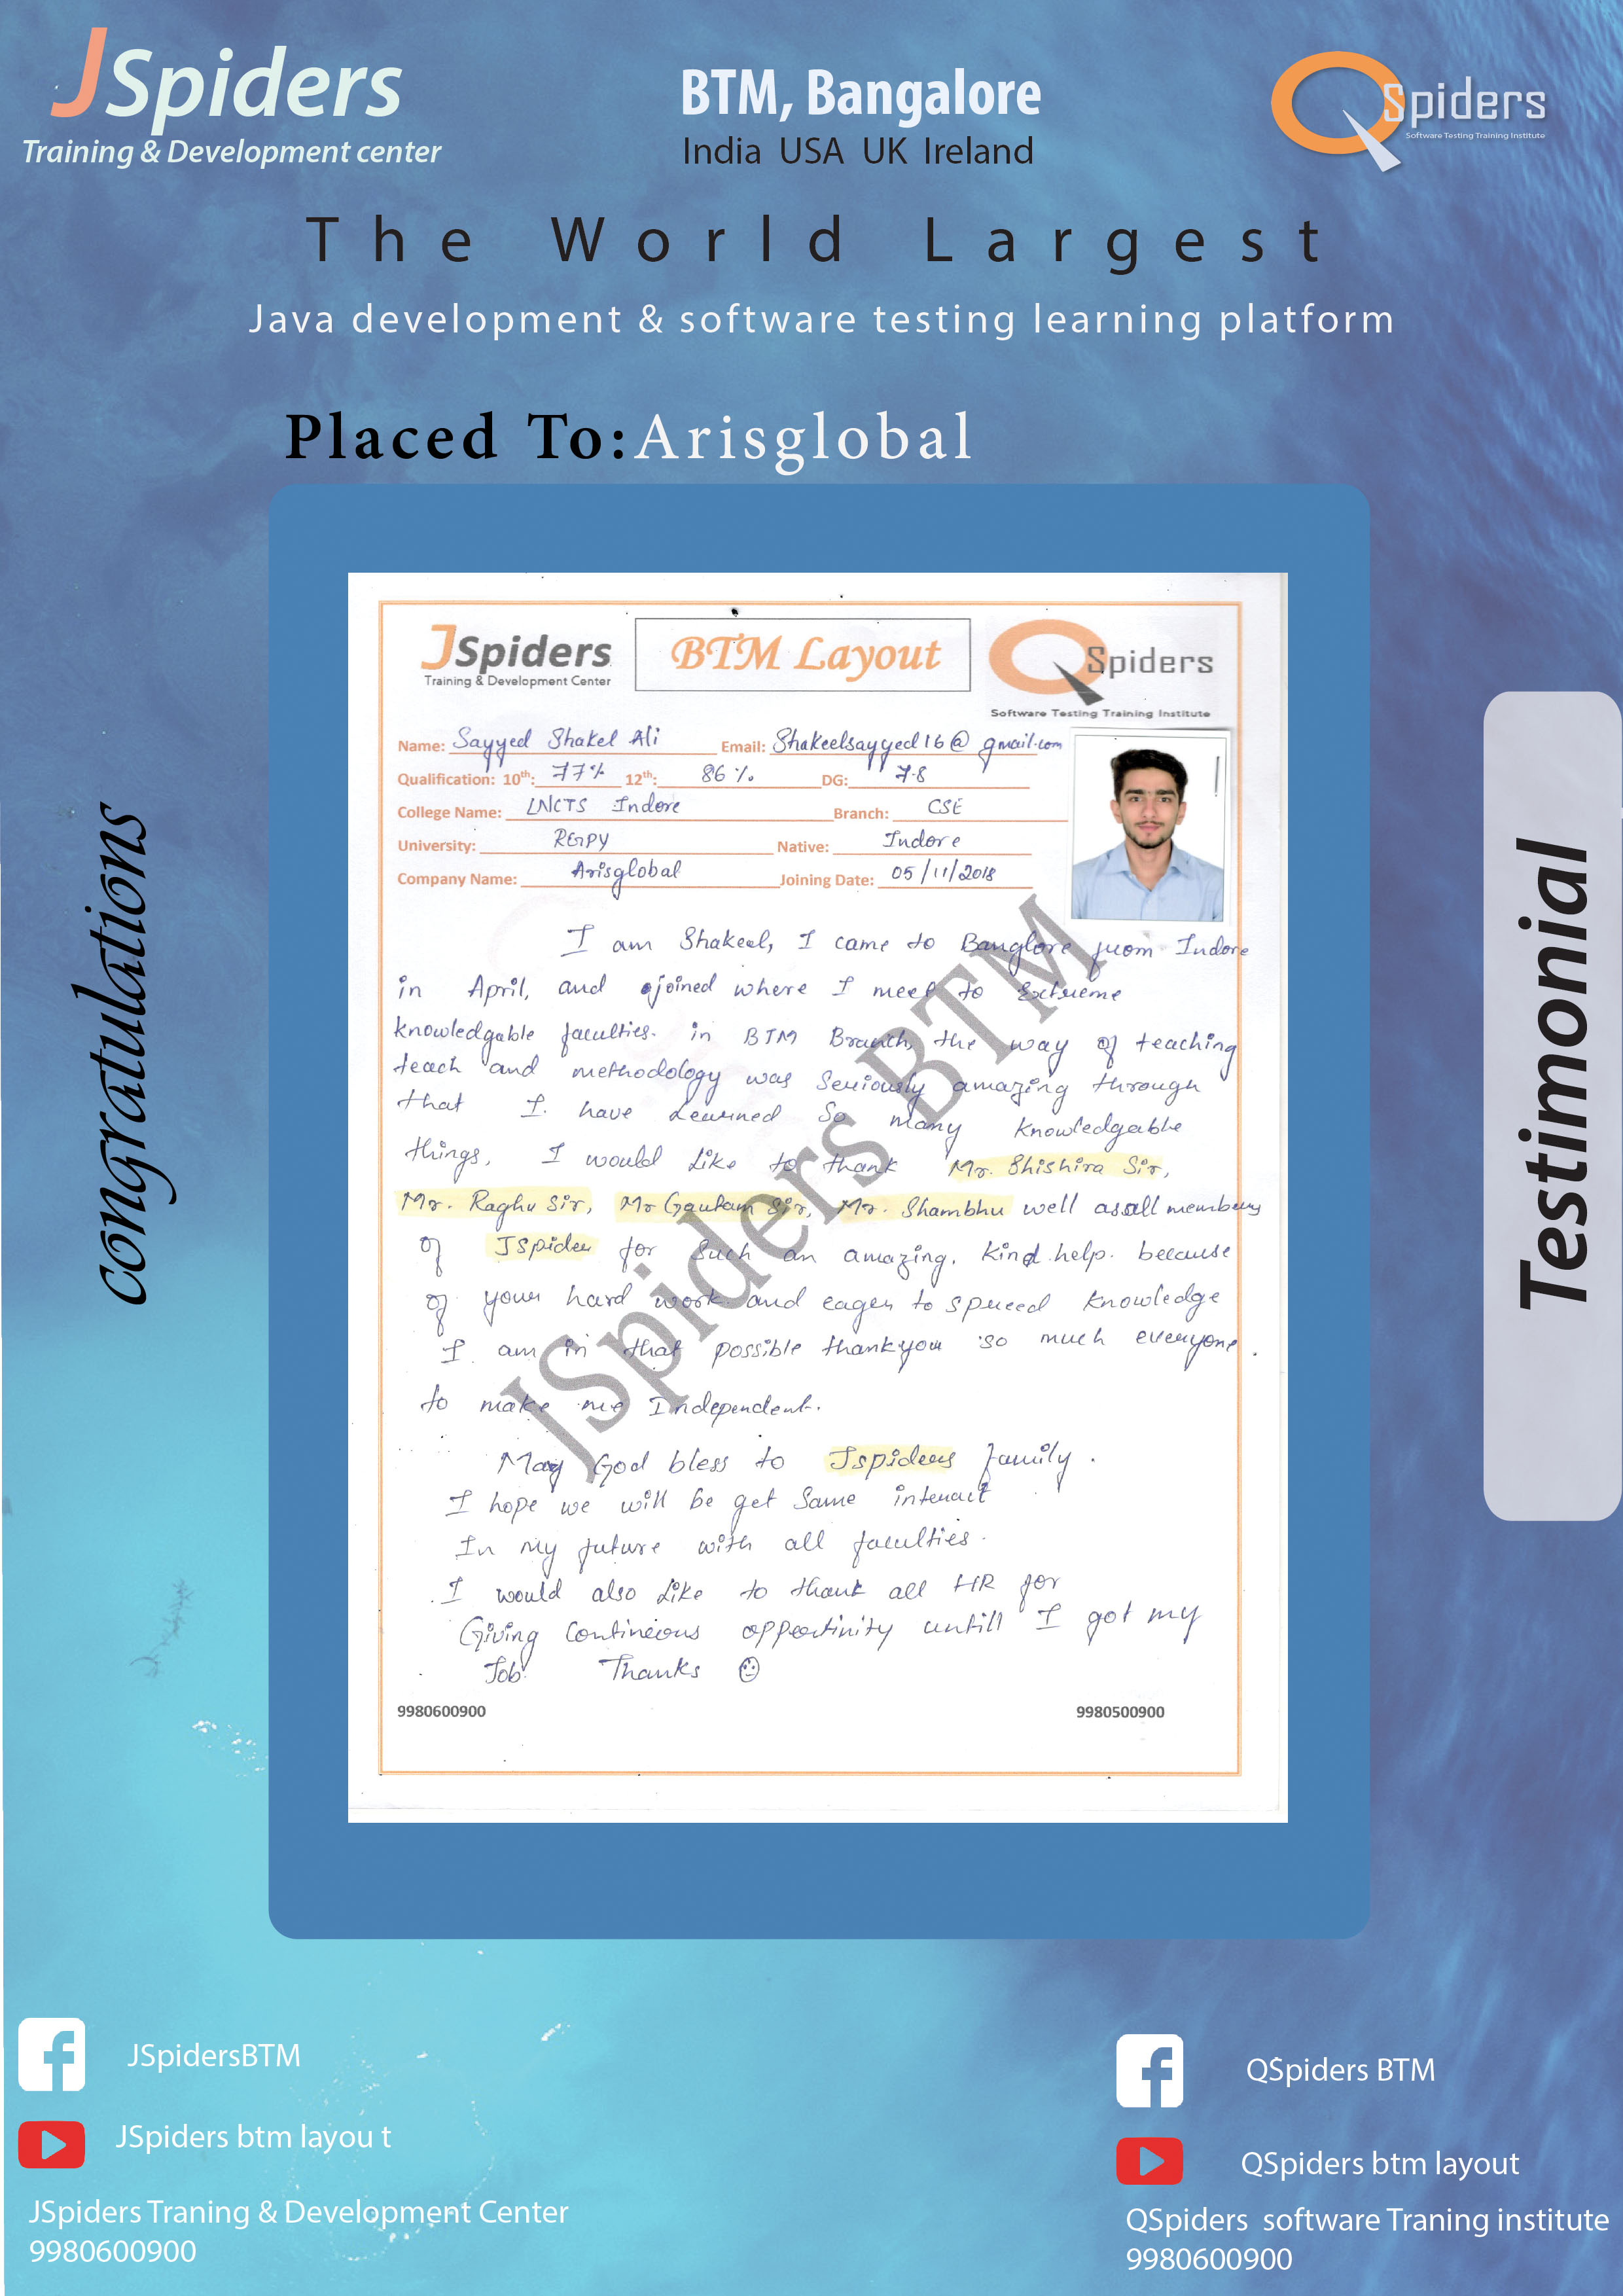 JSpiders
Training & Development center
BTM, Bangalore
India USA UK Ireland
QSpiders
Software Testing Training Institute
The World Largest
Java development & software testing learning platform
Placed To:Arisglobal
congratulations
Testimonial
JSpiders
Training & Development Center
BTM Layout
QSpiders
Software Testing Training Institute
Name: Sayyed Shakel Ali Email: Shakeelsayyed16@gmail.com
Qualification: 10th: 77% 12th: 86% DG: 7.8
College Name: LNCTS Indore Branch: CSE
University: RGPV Native: Indore
Company Name: Arisglobal Joining Date: 05/11/2018
I am Shakeel, I came to Banglore from Indore
in April, and joined where I meet to Extreme
knowledgable faculties. in BTM Branch, the way of teaching
teach and methodology was Seriously amazing through
that I have Learned So many knowledgable
things, I would Like to thank Mr. Shishira Sir,
Mr. Raghu Sir, Mr Gautam Sir, Mr. Shambhu well as all members
of JSpider for Such an amazing, kind help. because
of your hard work and eager to spreed knowledge
I am in that possible thankyou so much everyone.
to make me Independent.
May God bless to Jspiders family.
I hope we will be get Same interact
In my future with all faculties.
I would also Like to thank all HR for
Giving Continuous oppertinity untill I got my
Job. Thanks
JSpiders BTM
9980600900 9980500900
JSpidersBTM
JSpiders btm layou t
JSpiders Traning & Development Center
9980600900
QSpiders BTM
QSpiders btm layout
QSpiders software Traning institute
9980600900